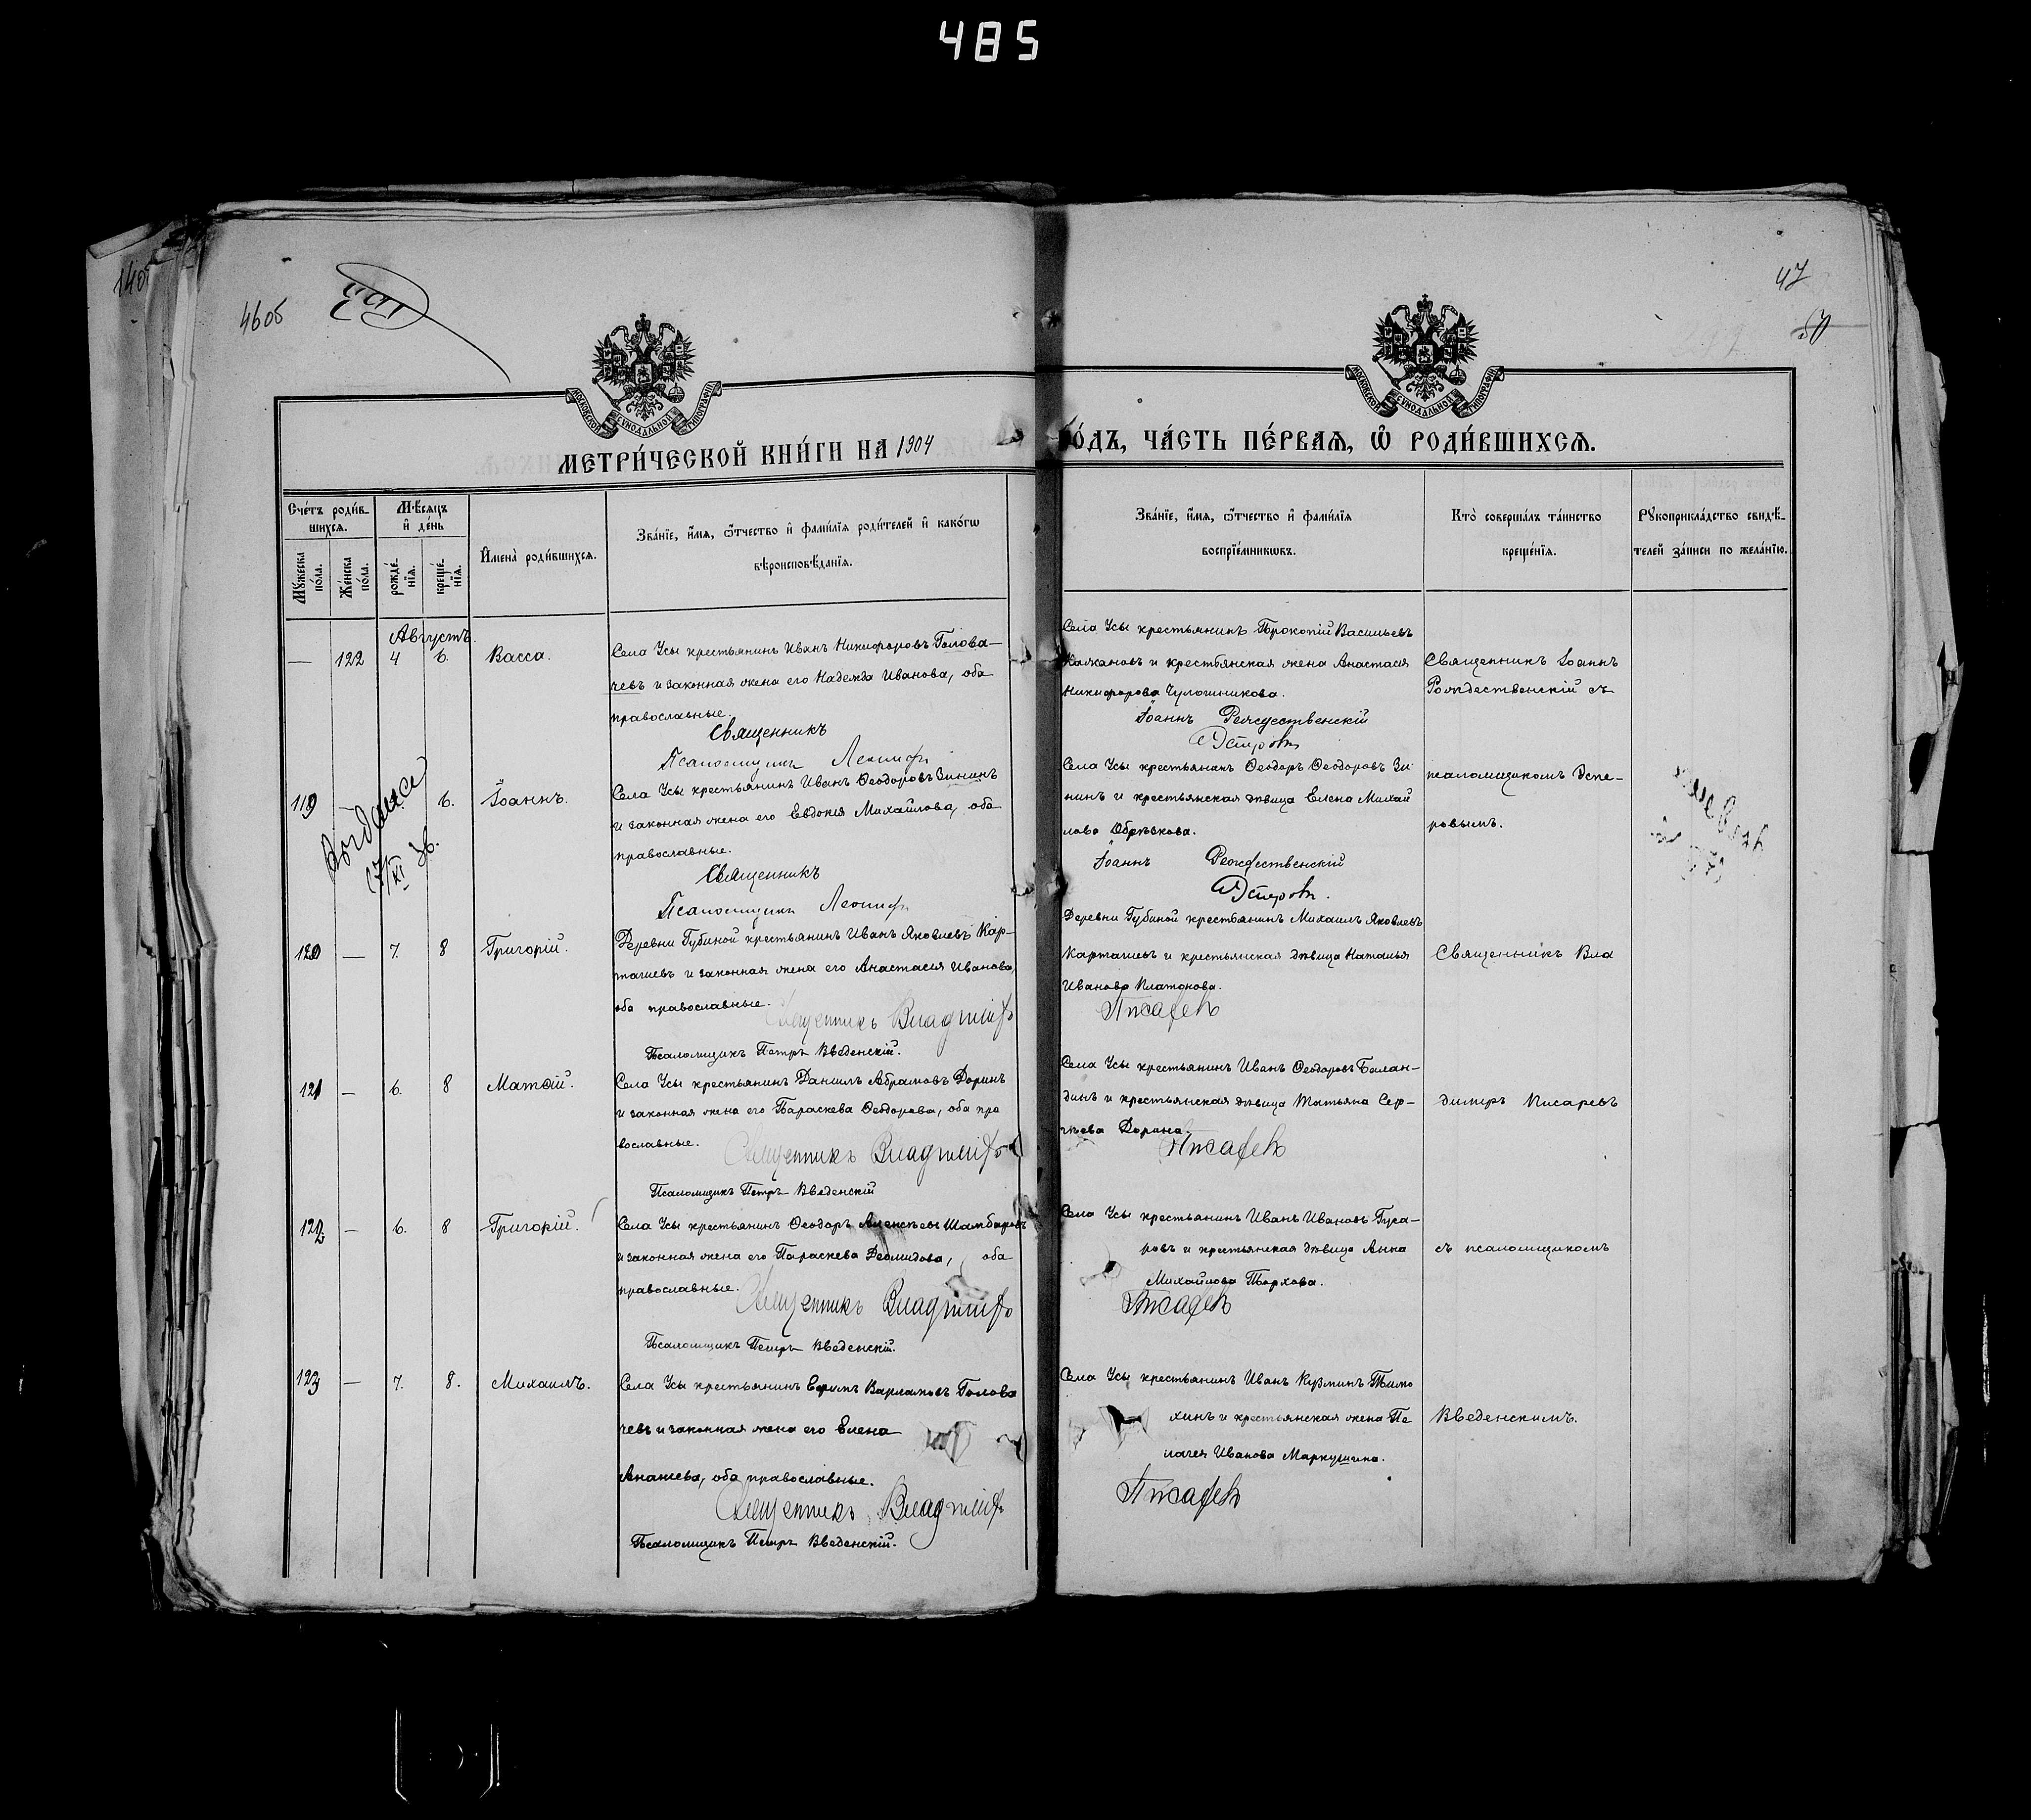 485
46об
47
50
МОСКОВСКОЙ СѴНОДАЛЬНОЙ ТИПОГРАФІИ
МОСКОВСКОЙ СѴНОДАЛЬНОЙ ТИПОГРАФІИ
МЕТРИ́ЧЕСКОЙ КНИ́ГИ НА 1904
О́ДЪ, ЧА́СТЬ ПЕ́РВАЯ, Ѽ РОДИ́ВШИХСЯ.
Сче́тъ роди́в-
шихся.
Мꙋ́жеска по́ла.
Же́нска по́ла.
Мѣ́сяцъ
и҆ де́нь
рожде́-
нїя.
креще́-
нїя.
И҆мена̀ роди́вшихся.
Зва́нїе, и҆́мя, ѻ҆́тчество и҆ фами́лїя роди́телей и҆ како́гѡ
вѣроисповѣ́данїя.
Зва́нїе, и҆́мя, ѻ҆́тчество и҆ фами́лїя
воспрїе́мникѡвъ.
Кто̀ соверша́лъ та́инство
креще́нїя.
Рꙋкоприкла́дство свидѣ́-
телей за́писи по жела́нїю.
Августъ.
— 122 4 6. Васса.
Села Усы крестьянинъ Иванъ Никифоровъ Голова-
чевъ и законная жена его Надежда Иванова, оба
православные.
Священникъ
Псаломщикъ
Села Усы крестьянинъ Прокопій Васильевъ
Калкановъ и крестьянская жена Анастасія
Никифорова Чулошникова.
Іоаннъ Рождественскій
Священникъ Іоаннъ
Рождественскій съ
119 6. Іоаннъ.
17/XI 36.
Села Усы крестьянинъ Иванъ Ѳеодоровъ Зининъ
и законная жена его Евдокія Михайлова, оба
православные.
Священникъ
Псаломщикъ
Села Усы крестьянинъ Ѳеодоръ Ѳеодоровъ Зи-
нинъ и крестьянская дѣвица Елена Михай
лова Обрѣзкова.
Іоаннъ Рождественскій
псаломщикомъ Эспе-
ровымъ.
120 — 7. 8 Григорій.
Деревни Губиной крестьянинъ Иванъ Яковлевъ Кар-
ташевъ и законная жена его Анастасія Иванова,
оба православные.
Священникъ Владиміръ
Псаломщикъ Петръ Введенскій.
Деревни Губиной крестьянинъ Михаилъ Яковлевъ
Карташевъ и крестьянская дѣвица Наталья
Иванова Платонова.
Писаревъ
Священникъ Вла
121 — 6. 8 Матѳій.
Села Усы крестьянинъ Даніилъ Абрамовъ Доринъ
и законная жена его Параскева Ѳеодорова, оба пра
вославные.
Священникъ Владиміръ
Псаломщикъ Петръ Введенскій
Села Усы крестьянинъ Иванъ Ѳеодоровъ Балан-
динъ и крестьянская дѣвица Татьяна Сер-
гѣева Дорина.
Писаревъ
диміръ Писаревъ
122 — 6. 8 Григорій.
Села Усы крестьянинъ Ѳеодоръ Алексѣевъ Шамбаровъ
и законная жена его Параскева Деомидова, оба
православные.
Священникъ Владиміръ
Псаломщикъ Петръ Введенскій.
Села Усы крестьянинъ Иванъ Ивановъ Гуса-
ровъ и крестьянская дѣвица Анна
Михайлова Торхова.
Писаревъ
съ псаломщикомъ
123 — 7. 8. Михаилъ.
Села Усы крестьянинъ Ефимъ Варламовъ Голова
чевъ и законная жена его Елена
Ананьева, оба православные.
Священникъ Владиміръ
Псаломщикъ Петръ Введенскій.
Села Усы крестьянинъ Иванъ Кузминъ Тимо
хинъ и крестьянская жена Пе
лагея Иванова Маркушина.
Писаревъ
Введенскимъ.